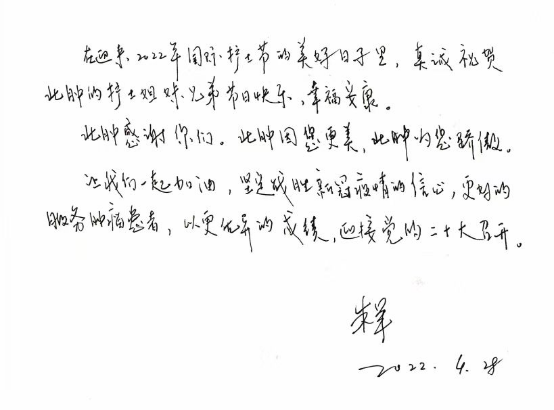 在迎来2022年国际护士节的美好日子里，真诚祝贺
北肿的护士姐妹兄弟节日快乐，幸福安康。
北肿感谢你们。北肿因您更美，北肿为您骄傲。
让我们一起加油，坚定战胜新冠疫情的信心，更好的
服务肿瘤患者，以更优异的成绩，迎接党的二十大召开。
朱军
2022.4.28